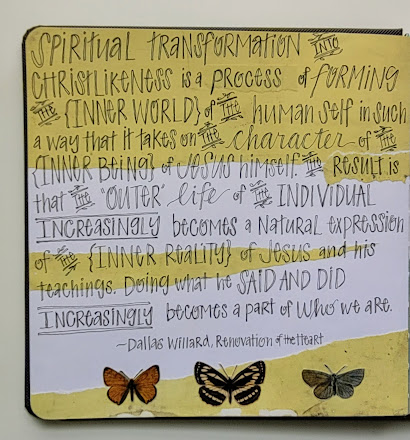 SPIRITUAL TRANSFORMATION INTO
CHRISTLIKENESS is a PROCESS of FORMING
THE {INNER WORLD} of THE human self in such
a way that it takes on THE character of THE
{INNER BEING} of JESUS himself. THE RESULT is
that THE "OUTER" life of THE INDIVIDUAL
INCREASINGLY becomes a NATURAL expression
of THE {INNER REALITY} of Jesus and his
teachings. Doing what he SAID AND DID
INCREASINGLY becomes a part of who we are.
~Dallas Willard, Renovation of the Heart